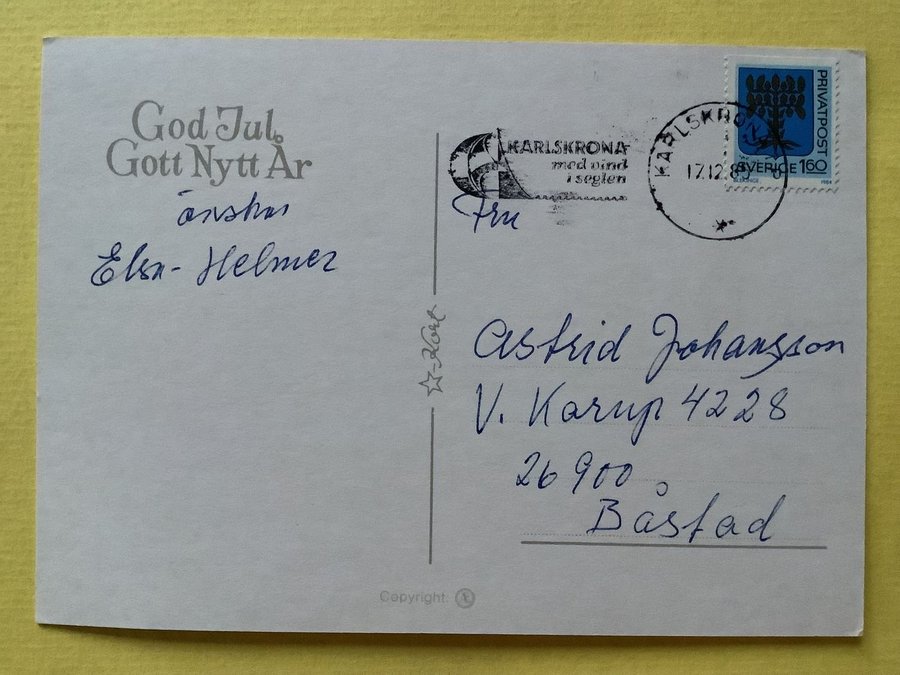 God Jul,
Gott Nytt År
önskar
Elsa - Helmer
KARLSKRONA
med vind
i seglen
KARLSKRONA
17.12.8
PRIVATPOST
SVERIGE 160
1984
Fru
Astrid Johansson
V. Karup 4228
26900
Båstad
☆-Kort
Copyright.